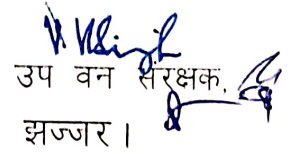 उप वन संरक्षक,
झज्जर ।